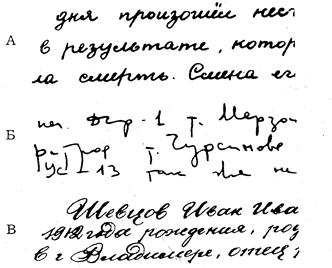 А
дня произошёл нест
в результате, котор
ла смерть. Смена ег
Б
1 т.
т.
13 так же не
В
Шевцов Иван Ива
1912 года рождения, род
в г Владимере, отец